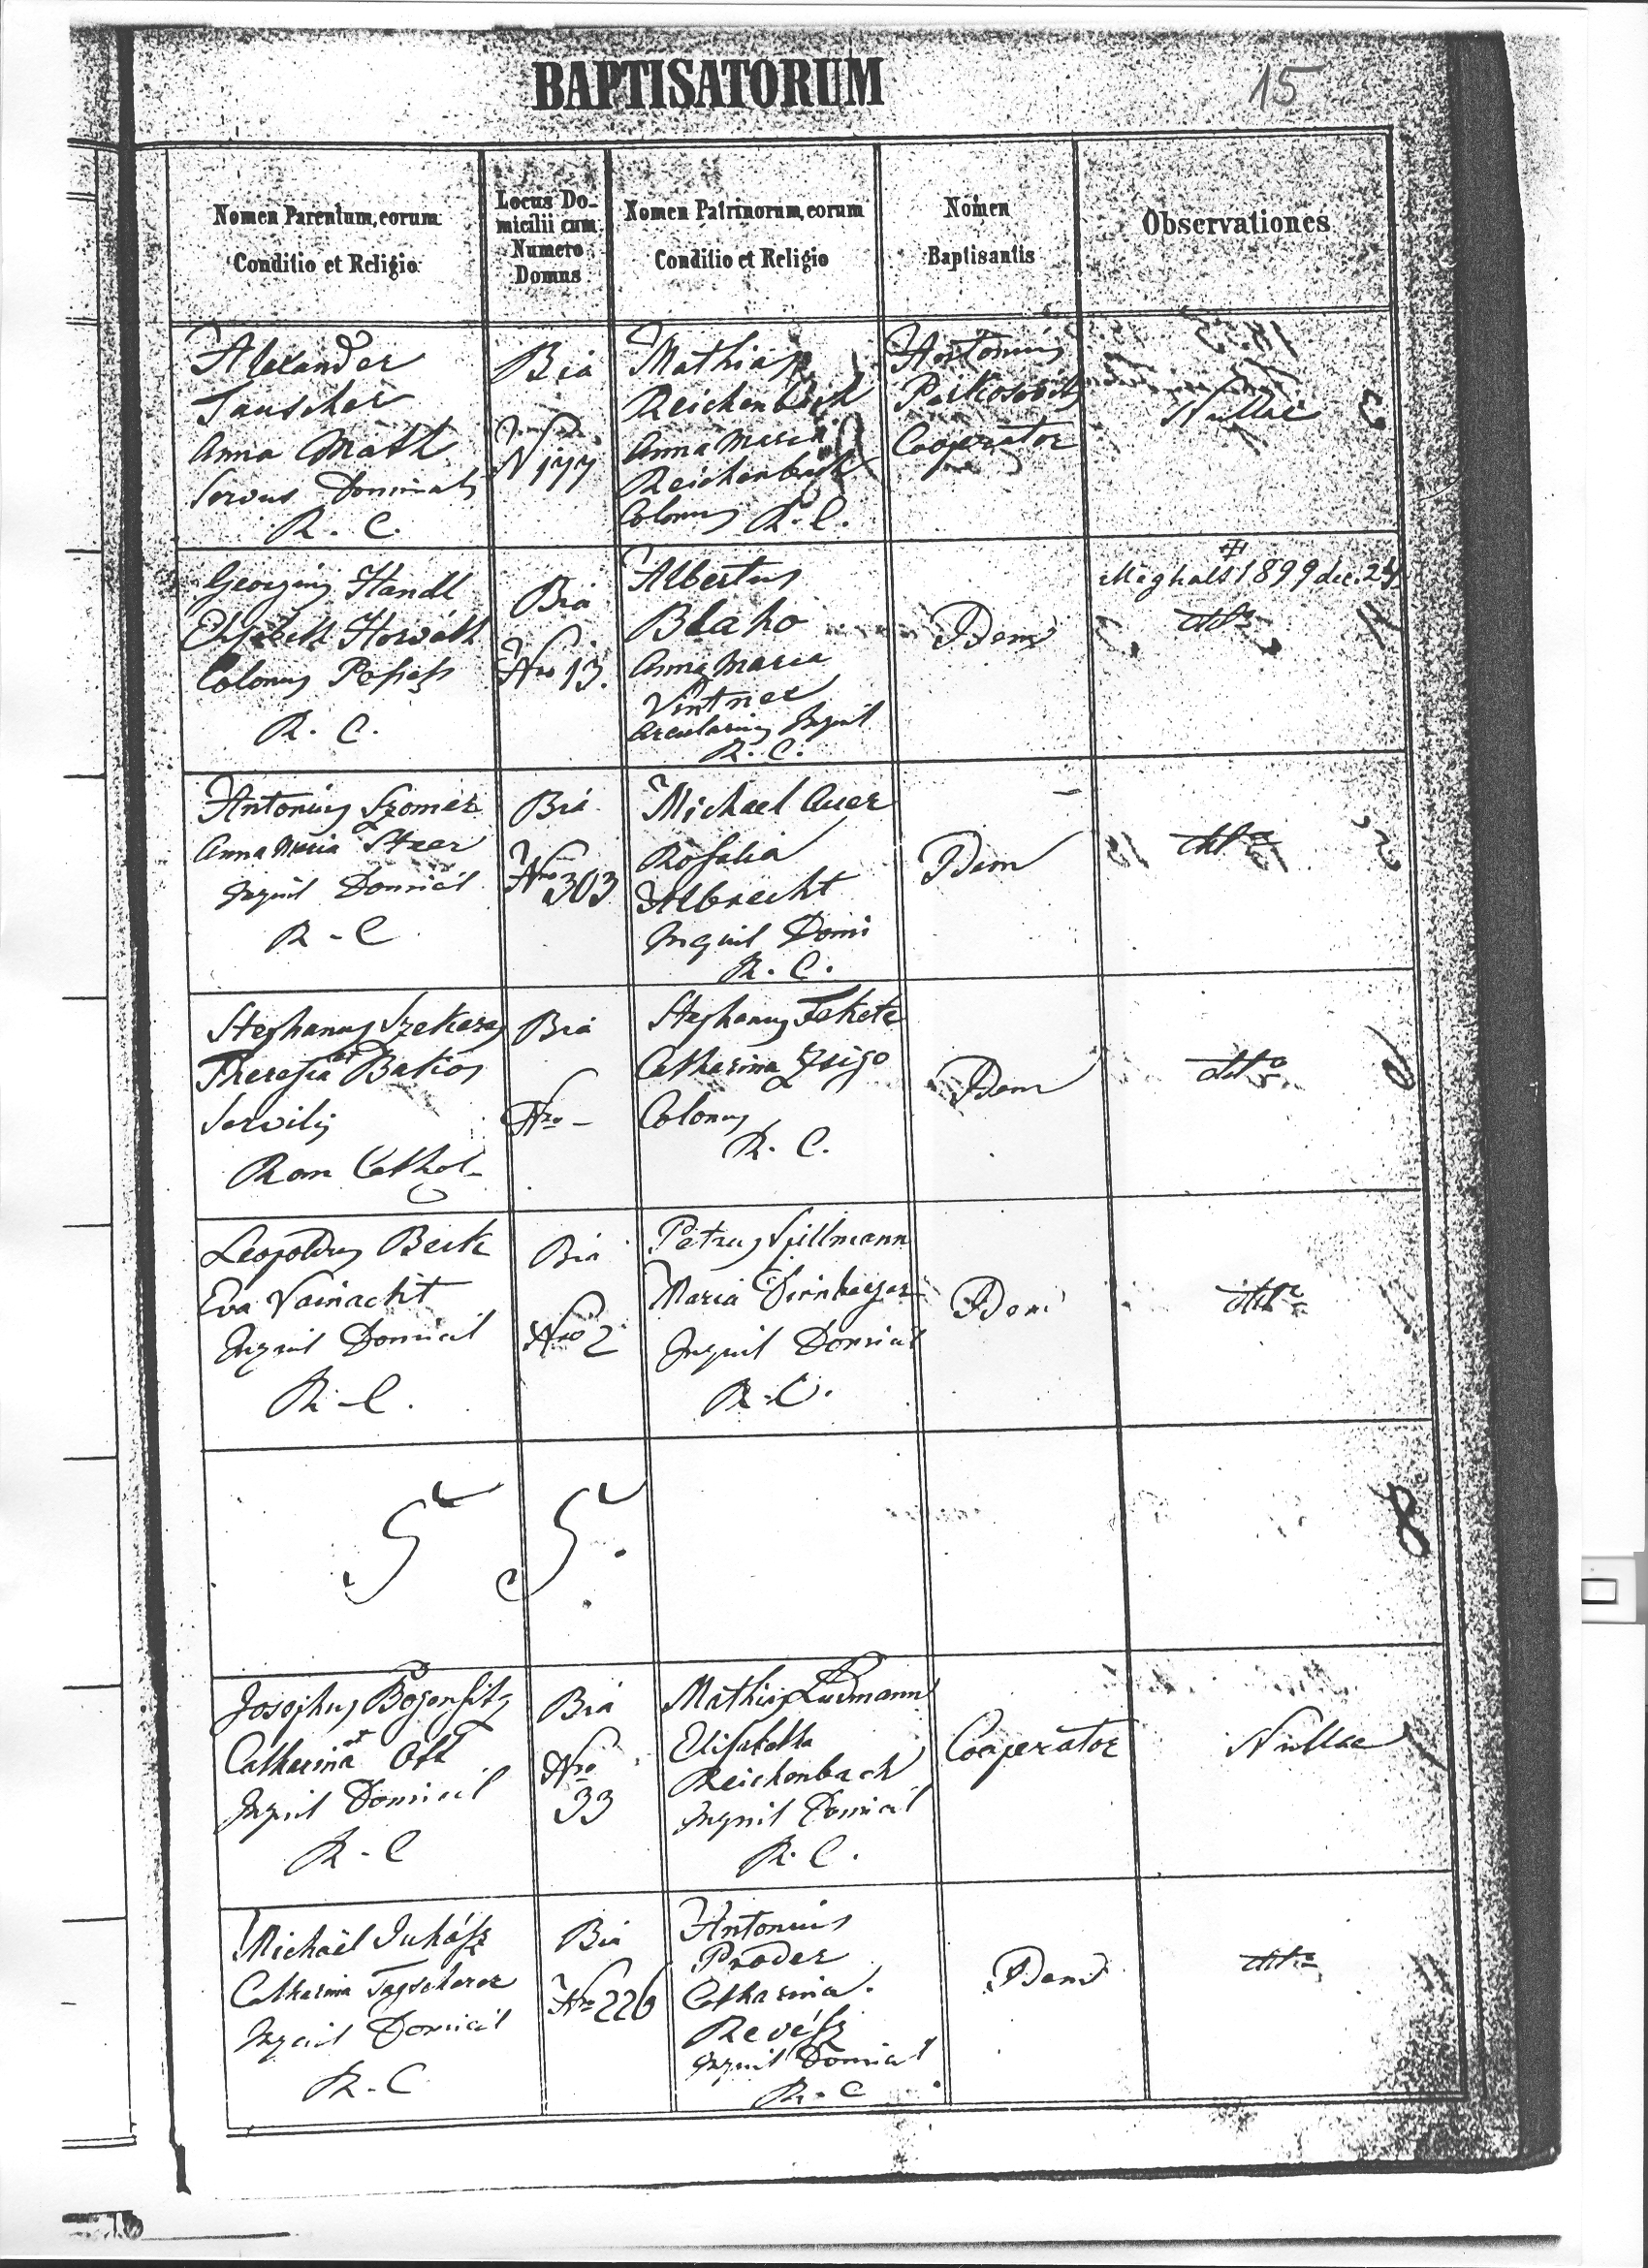 BAPTISATORUM
15
Nomen Parentum, eorum
Conditio et Religio
Locus Do-
micilii cum
Numero
Domus
Nomen Patrinorum, eorum
Conditio et Religio
Nomen
Baptisantis
Observationes
Alexander
Tauscher
Anna Math
Servus
R. C.
Bia
N 177
Mathias
Reichenbach
Anna Maria
Reichenbach
Colonus R. C.
Antonius
Cooperator
Nullae
Georgius Handl
Elisabeth Horváth
Colonus
R. C.
Bia
Nro 13.
Albertus
Blaho
Anna Maria
Vintner
Arcularius Inquil
R. C.
Idem
Meghalt 1899 dec. 24
dtto
Antonius Szomer
Anna Maria
Inquil Domicil
R - C
Biá
Nro 303
Michael Auer
Rosalia
Albrecht
Inquil Domi
R. C.
Idem
dtto
Stephanus Szekeres
Theresia Bakos
Servilis
Rom Cathol
Biá
Nro -
Stephanus Fekete
Catharina Zsigo
Colonus
R. C.
Idem
dtto
Leopoldus Beck
Eva Vainacht
Inquil Domicil
R - C.
Bia
Nro 2
Petrus Spillmann
Maria
Inquil Domicil
R. C.
Idem
dtto
5 5.
8
Josephus
Catharina Ott
Inquil Domicil
R - C
Biá
Nro
33
Mathias Ludmann
Elisabetha
Reichenbach
Inquil Domicil
R. C.
Cooperator
Nullae
Michaël Juhász
Catharina Tagscherer
Inquil Domicil
R. C
Bia
Nro 226
Antonius
Prader
Catharina
Revész
Inquil Domicil
R. C
Idem
dtto